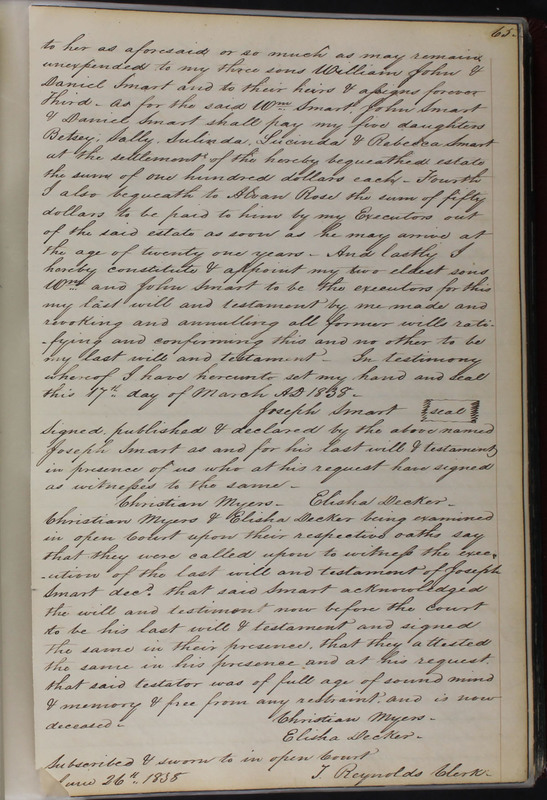 63.
to her as aforesaid or so much as may remain
unexpended to my three sons William John &
Daniel Smart and to their heirs & assigns forever
Third - As for the said Wm Smart, John Smart
& Daniel Smart shall pay my five daughters
Betsey, Sally, Sulinda, Lucinda & Rebecca Smart
at the settlement of the hereby bequeathed estate
the sum of one hundred dollars each - Fourth
I also bequeath to Alvan Rose the sum of fifty
dollars to be paid to him by my Executors out
of the said estate as soon as he may arrive at
the age of twenty one years - And lastly I
hereby constitute & appoint my two eldest sons
Wm and John Smart to be the executors for this
my last will and testament by me made and
revoking and annulling all former wills rati-
-fying and confirming this and no other to be
my last will and testament - In testimony
whereof I have hereunto set my hand and seal
this 17th day of March AD 1838 -
Joseph Smart seal
Signed, published & declared by the above named
Joseph Smart as and for his last will & testament
in presence of us who at his request have signed
as witnesses to the same -
Christian Myers - Elisha Decker -
Christian Myers & Elisha Decker being examined
in open Court upon their respective oaths say
that they were called upon to witness the exec-
-ution of the last will and testament of Joseph
Smart decd. that said Smart acknowledged
the will and testiment now before the court
to be his last will & testament and signed
the same in their presence, that they attested
the same in his presence and at his request.
that said testator was of full age of sound mind
& memory & free from any restraint, and is now
deceased - Christian Myers -
Elisha Decker -
Subscribed & sworn to in open Court
June 26th, 1838 T. Reynolds Clerk -